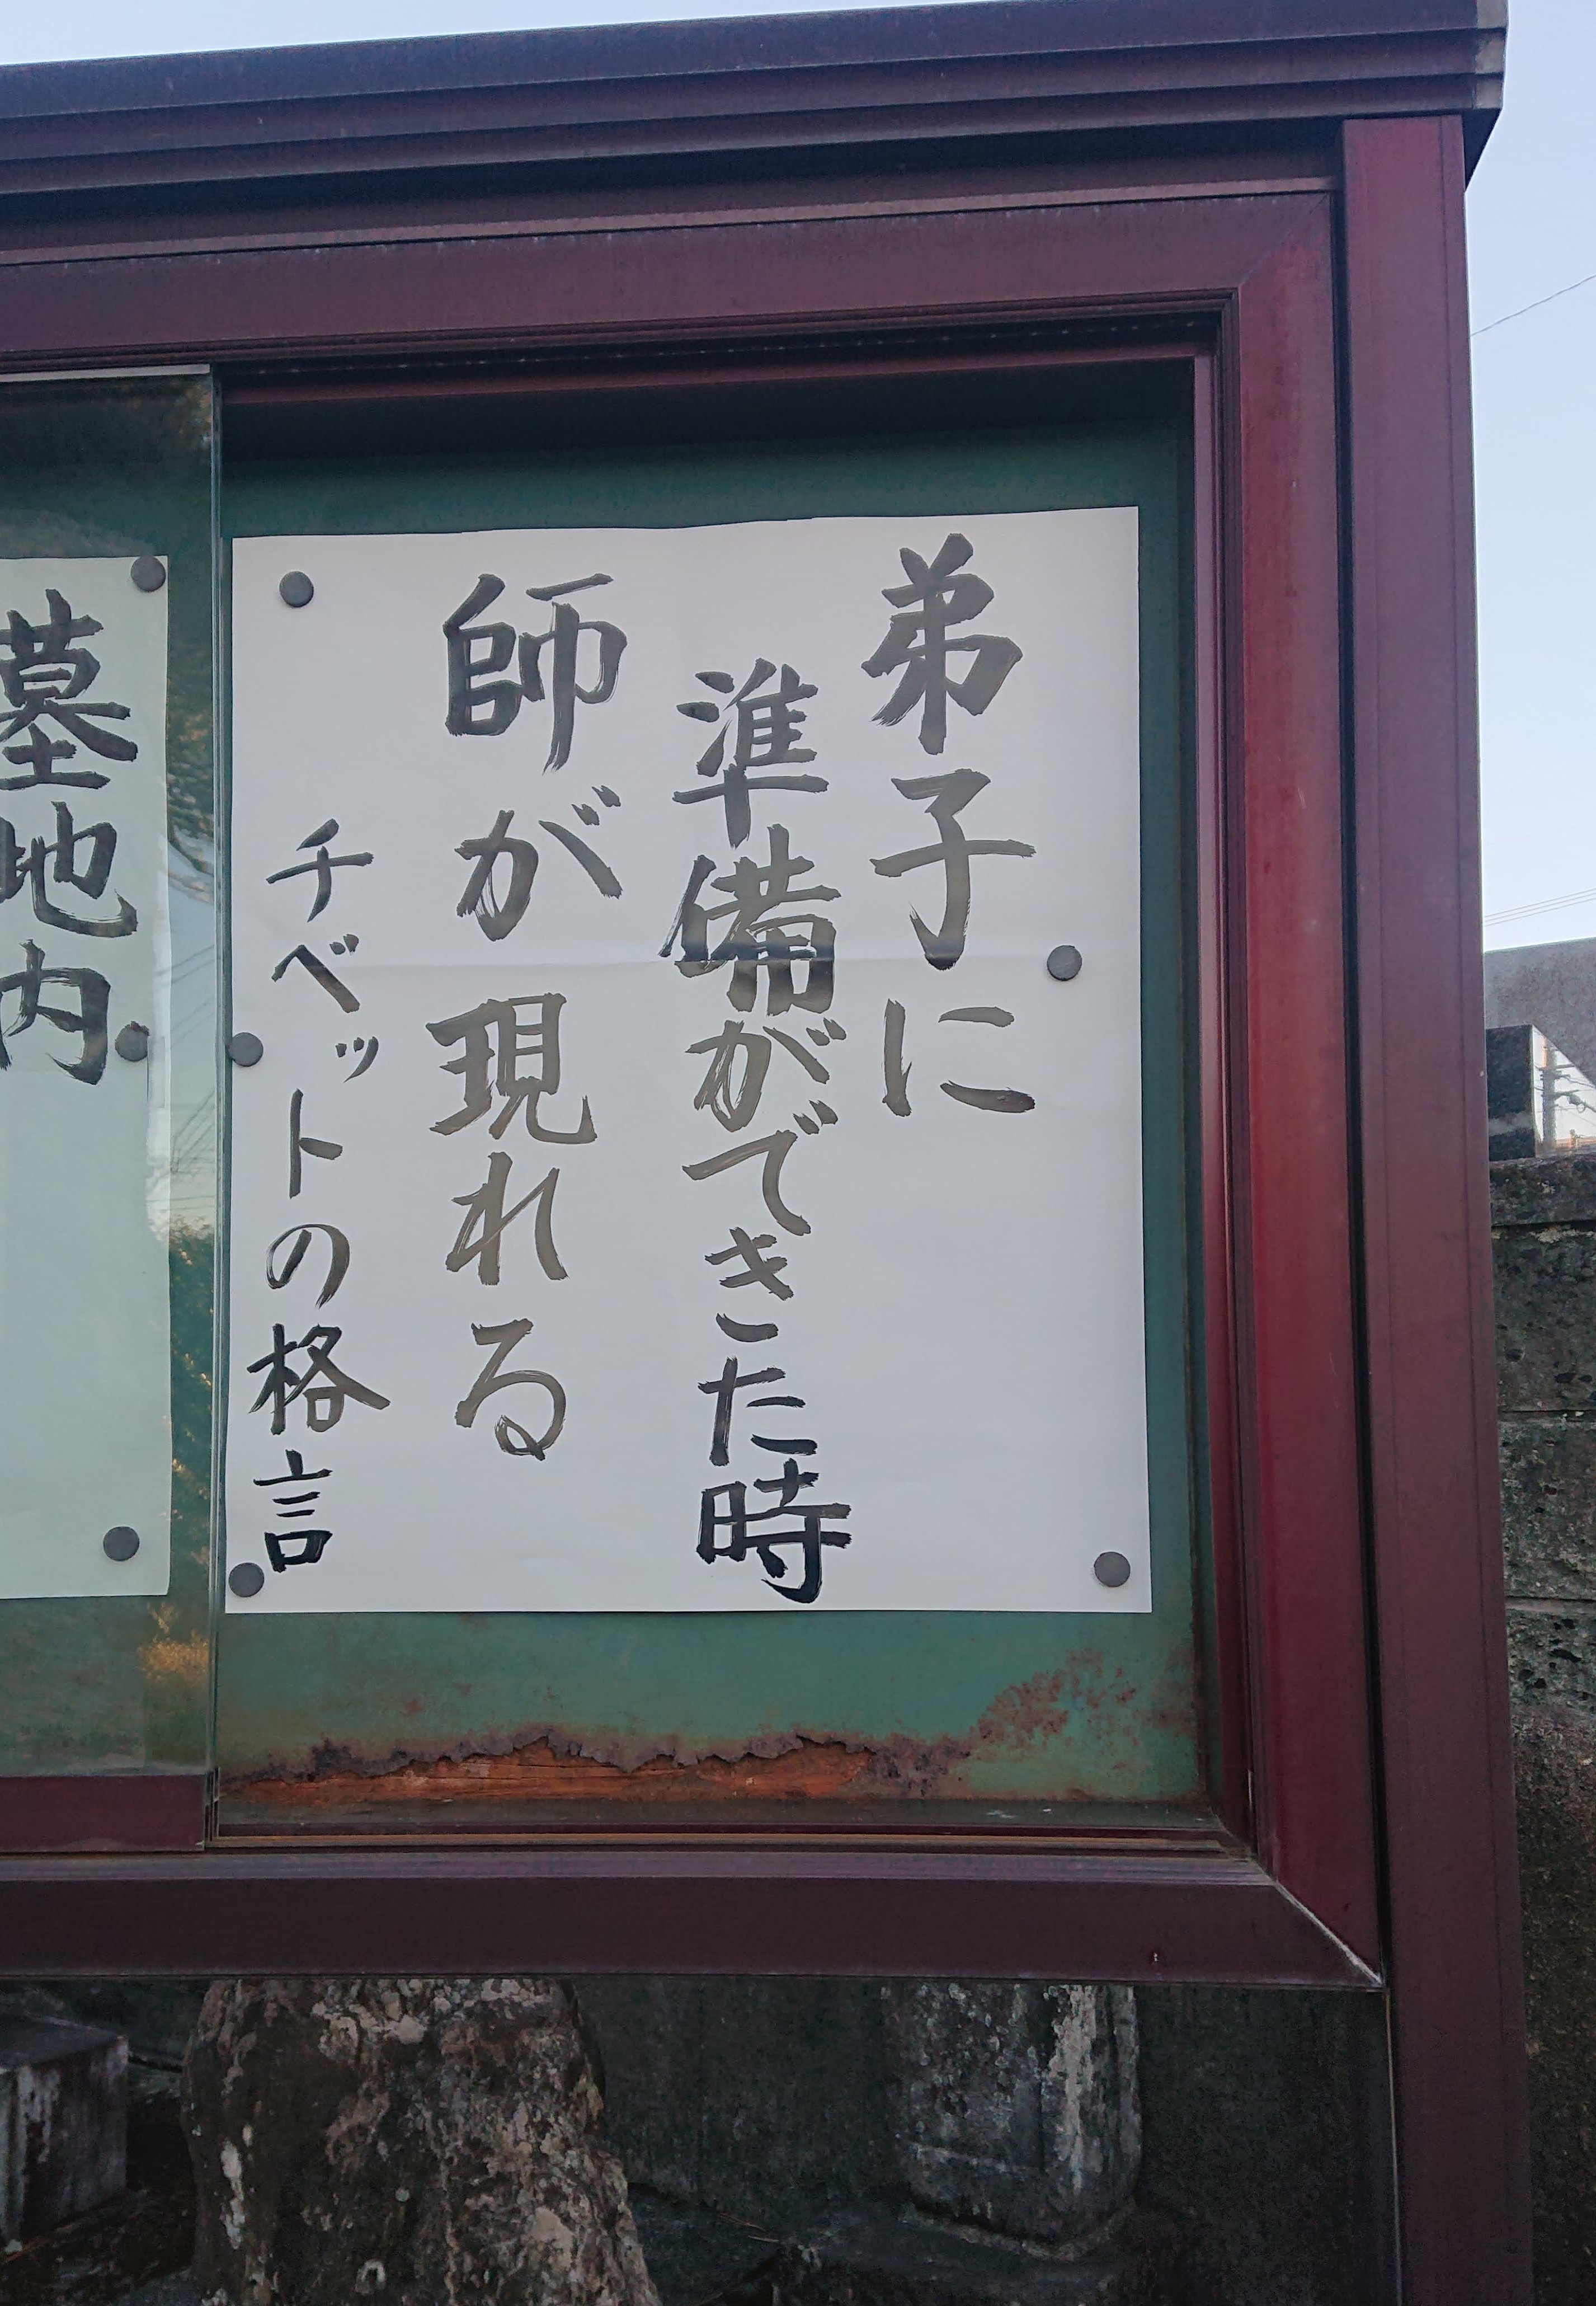 弟子に
準備ができた時
師が現れる
チベットの格言
墓地内